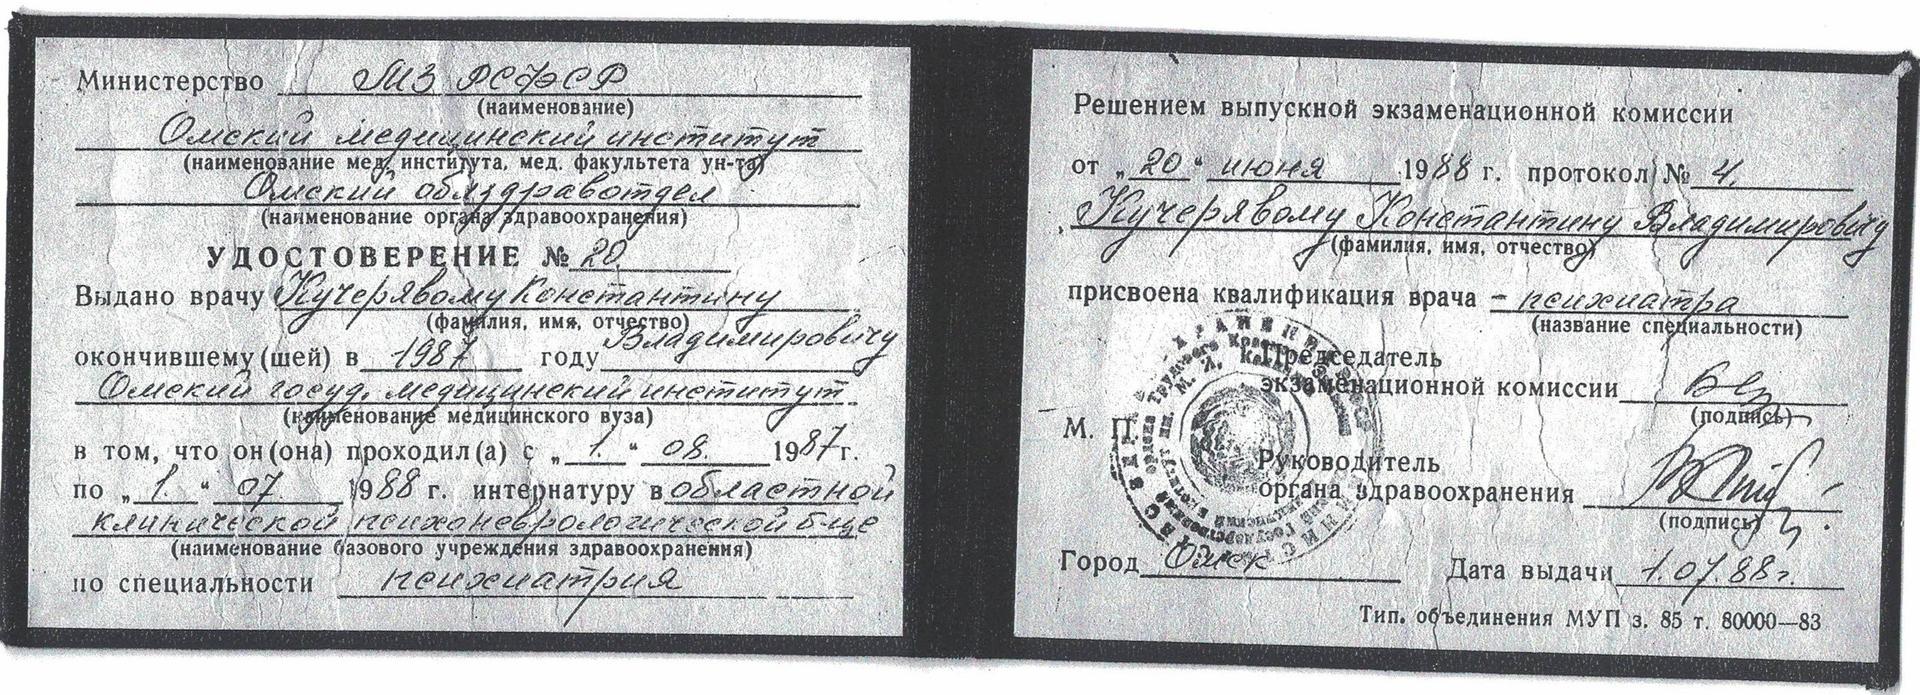 Министерство МЗ РСФСР
(наименование)
Омский медицинский институт
(наименование мед. института, мед. факультета ун-та)
Омский облздравотдел
(наименование органа здравоохранения)
УДОСТОВЕРЕНИЕ № 20
Выдано врачу Кучерявому Константину
(фамилия, имя, отчество)
Владимировичу
окончившему(шей) в 1987 году
Омский госуд. медицинский институт
(наименование медицинского вуза)
в том, что он(она) проходил(а) с „1.“ 08. 1987 г.
по „1.“ 07. 1988 г. интернатуру в областной
клинической психоневрологической б-це
(наименование базового учреждения здравоохранения)
по специальности психиатрия
Решением выпускной экзаменационной комиссии
от „20“ июня 1988 г. протокол № 4.
Кучерявому Константину Владимировичу
(фамилия, имя, отчество)
присвоена квалификация врача – психиатра
(название специальности)
Председатель
экзаменационной комиссии
(подпись)
М. П.
Руководитель
органа здравоохранения
(подпись)
Город Омск Дата выдачи 1.07.88г.
Тип. объединения МУП з. 85 т. 80000—83